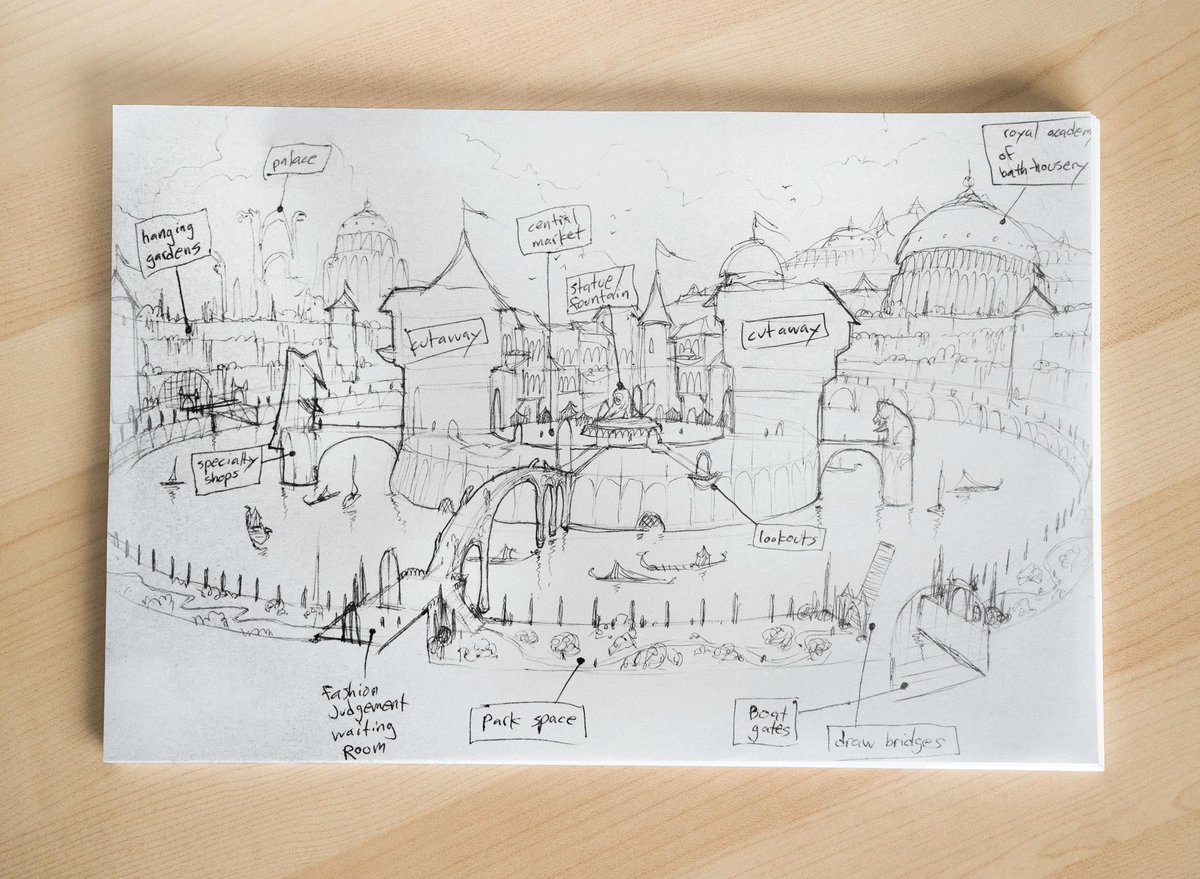 royal academ
of
bath-housery
palace
hanging
gardens
central
market
Statue
fountain
cutaway
cutaway
specialty
shops
lookouts
Fashion
Judgement
waiting
Room
Park space
Boat
gates
draw bridges